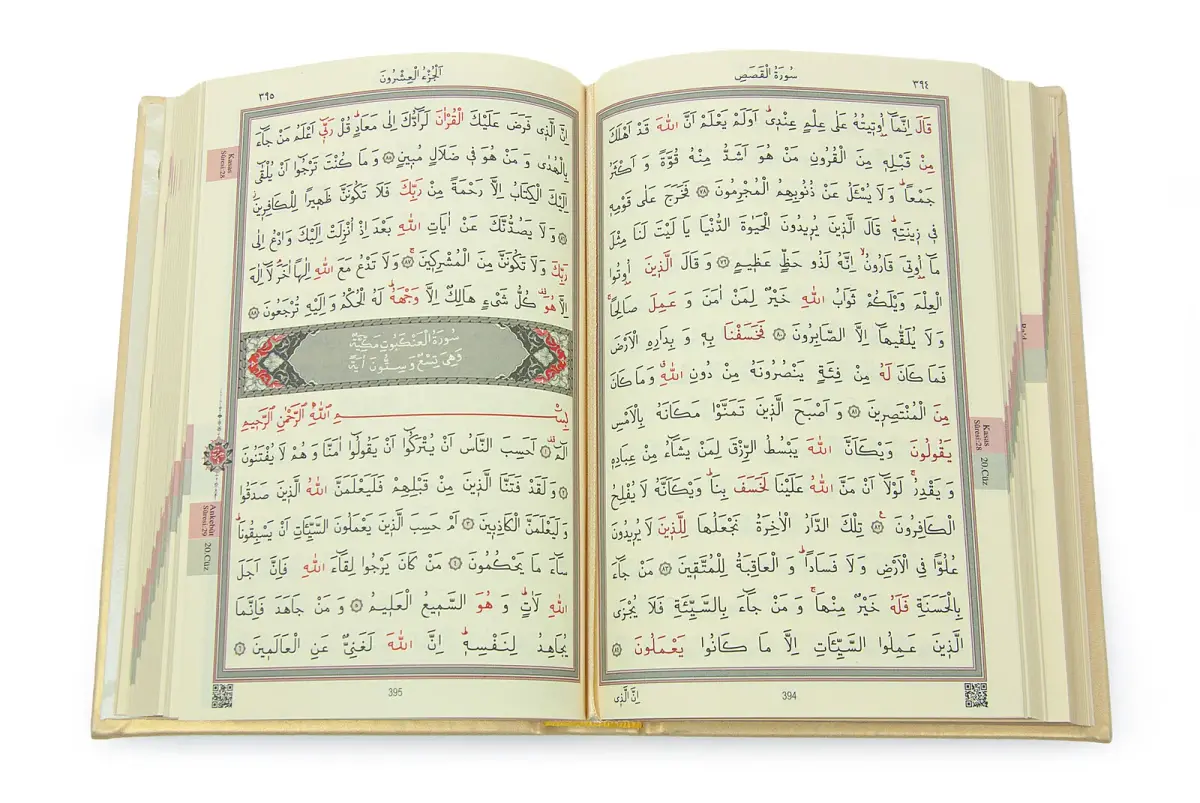 سُورَةُ الْقَصَصِ
٣٩٤
قَالَ اِنَّمَٓا اُو۫ت۪يتُهُ عَلٰى عِلْمٍ عِنْد۪يۜ اَوَلَمْ يَعْلَمْ اَنَّ اللّٰهَ قَدْ اَهْلَكَ
مِنْ قَبْلِه۪ مِنَ الْقُرُونِ مَنْ هُوَ اَشَدُّ مِنْهُ قُوَّةً وَ اَكْثَرُ
جَمْعاًۜ وَ لَا يُسْـَٔلُ عَنْ ذُنُوبِهِمُ الْمُجْرِمُونَ ﴿٧٨﴾ فَخَرَجَ عَلٰى قَوْمِه۪
ف۪ي ز۪ينَتِه۪ۜ قَالَ الَّذ۪ينَ يُر۪يدُونَ الْحَيٰوةَ الدُّنْيَا يَا لَيْتَ لَنَا مِثْلَ
مَٓا اُو۫تِيَ قَارُونُۙ اِنَّهُ لَذُو حَظٍّ عَظ۪يمٍ ﴿٧٩﴾ وَ قَالَ الَّذ۪ينَ اُو۫تُوا
الْعِلْمَ وَيْلَكُمْ ثَوَابُ اللّٰهِ خَيْرٌ لِمَنْ اٰمَنَ وَ عَمِلَ صَالِحاًۚ
وَ لَا يُلَقّٰيهَٓا اِلَّا الصَّابِرُونَ ﴿٨٠﴾ فَخَسَفْنَا بِه۪ وَ بِدَارِهِ الْاَرْضَ
فَمَا كَانَ لَهُ مِنْ فِئَةٍ يَنْصُرُونَهُ مِنْ دُونِ اللّٰهِۗ وَ مَا كَانَ
مِنَ الْمُنْتَصِر۪ينَ ﴿٨١﴾ وَ اَصْبَحَ الَّذ۪ينَ تَمَنَّوْا مَكَانَهُ بِالْاَمْسِ
يَقُولُونَ وَيْكَاَنَّ اللّٰهَ يَبْسُطُ الرِّزْقَ لِمَنْ يَشَٓاءُ مِنْ عِبَادِه۪
وَ يَقْدِرُۚ لَوْلَٓا اَنْ مَنَّ اللّٰهُ عَلَيْنَا لَخَسَفَ بِنَاۜ وَيْكَاَنَّهُ لَا يُفْلِحُ
الْكَافِرُونَ ﴿٨٢﴾ تِلْكَ الدَّارُ الْاٰخِرَةُ نَجْعَلُهَا لِلَّذ۪ينَ لَا يُر۪يدُونَ
عُلُوًّا فِي الْاَرْضِ وَ لَا فَسَاداًۜ وَ الْعَاقِبَةُ لِلْمُتَّق۪ينَ ﴿٨٣﴾ مَنْ جَٓاءَ
بِالْحَسَنَةِ فَلَهُ خَيْرٌ مِنْهَاۚ وَ مَنْ جَٓاءَ بِالسَّيِّئَةِ فَلَا يُجْزَى
الَّذ۪ينَ عَمِلُوا السَّيِّـَٔاتِ اِلَّا مَا كَانُوا يَعْمَلُونَ ﴿٨٤﴾
394
اِنَّ الَّذ۪ي
Kasas
Sûresi:28
20.Cüz
اَلْجُزْءُ الْعِشْرُونَ
٣٩٥
اِنَّ الَّذ۪ي فَرَضَ عَلَيْكَ الْقُرْاٰنَ لَرَٓادُّكَ اِلٰى مَعَادٍۜ قُلْ رَبّ۪ٓي اَعْلَمُ مَنْ جَٓاءَ
بِالْهُدٰى وَ مَنْ هُوَ ف۪ي ضَلَالٍ مُب۪ينٍ ﴿٨٥﴾ وَ مَا كُنْتَ تَرْجُٓوا اَنْ يُلْقٰٓى
اِلَيْكَ الْكِتَابُ اِلَّا رَحْمَةً مِنْ رَبِّكَ فَلَا تَكُونَنَّ ظَه۪يراً لِلْكَافِر۪ينَۘ
﴿٨٦﴾ وَ لَا يَصُدُّنَّكَ عَنْ اٰيَاتِ اللّٰهِ بَعْدَ اِذْ اُنْزِلَتْ اِلَيْكَ وَ ادْعُ اِلٰى
رَبِّكَ وَ لَا تَكُونَنَّ مِنَ الْمُشْرِك۪ينَۚ ﴿٨٧﴾ وَ لَا تَدْعُ مَعَ اللّٰهِ اِلٰهاً اٰخَرَۢ لَٓا اِلٰهَ
اِلَّا هُوَ۠ كُلُّ شَيْءٍ هَالِكٌ اِلَّا وَجْهَهُۜ لَهُ الْحُكْمُ وَ اِلَيْهِ تُرْجَعُونَ ﴿٨٨﴾
سُورَةُ الْعَنْكَبُوتِ مَكِّيَّةٌ
وَهِيَ تِسْعٌ وَ سِتُّونَ اٰيَةً
بِسْمِ اللّٰهِ الرَّحْمٰنِ الرَّح۪يمِ
الٓمٓۚ ﴿١﴾ اَحَسِبَ النَّاسُ اَنْ يُتْرَكُٓوا اَنْ يَقُولُٓوا اٰمَنَّا وَ هُمْ لَا يُفْتَنُونَ
﴿٢﴾ وَ لَقَدْ فَتَنَّا الَّذ۪ينَ مِنْ قَبْلِهِمْ فَلَيَعْلَمَنَّ اللّٰهُ الَّذ۪ينَ صَدَقُوا
وَ لَيَعْلَمَنَّ الْكَاذِب۪ينَ ﴿٣﴾ اَمْ حَسِبَ الَّذ۪ينَ يَعْمَلُونَ السَّيِّـَٔاتِ اَنْ يَسْبِقُونَاۜ
سَٓاءَ مَا يَحْكُمُونَ ﴿٤﴾ مَنْ كَانَ يَرْجُوا لِقَٓاءَ اللّٰهِ فَاِنَّ اَجَلَ
اللّٰهِ لَاٰتٍۜ وَ هُوَ السَّم۪يعُ الْعَل۪يمُ ﴿٥﴾ وَ مَنْ جَاهَدَ فَاِنَّمَا
يُجَاهِدُ لِنَفْسِه۪ۜ اِنَّ اللّٰهَ لَغَنِيٌّ عَنِ الْعَالَم۪ينَ ﴿٦﴾
395
Kasas
Sûresi:28
Ankebût
Sûresi:29
20.Cüz